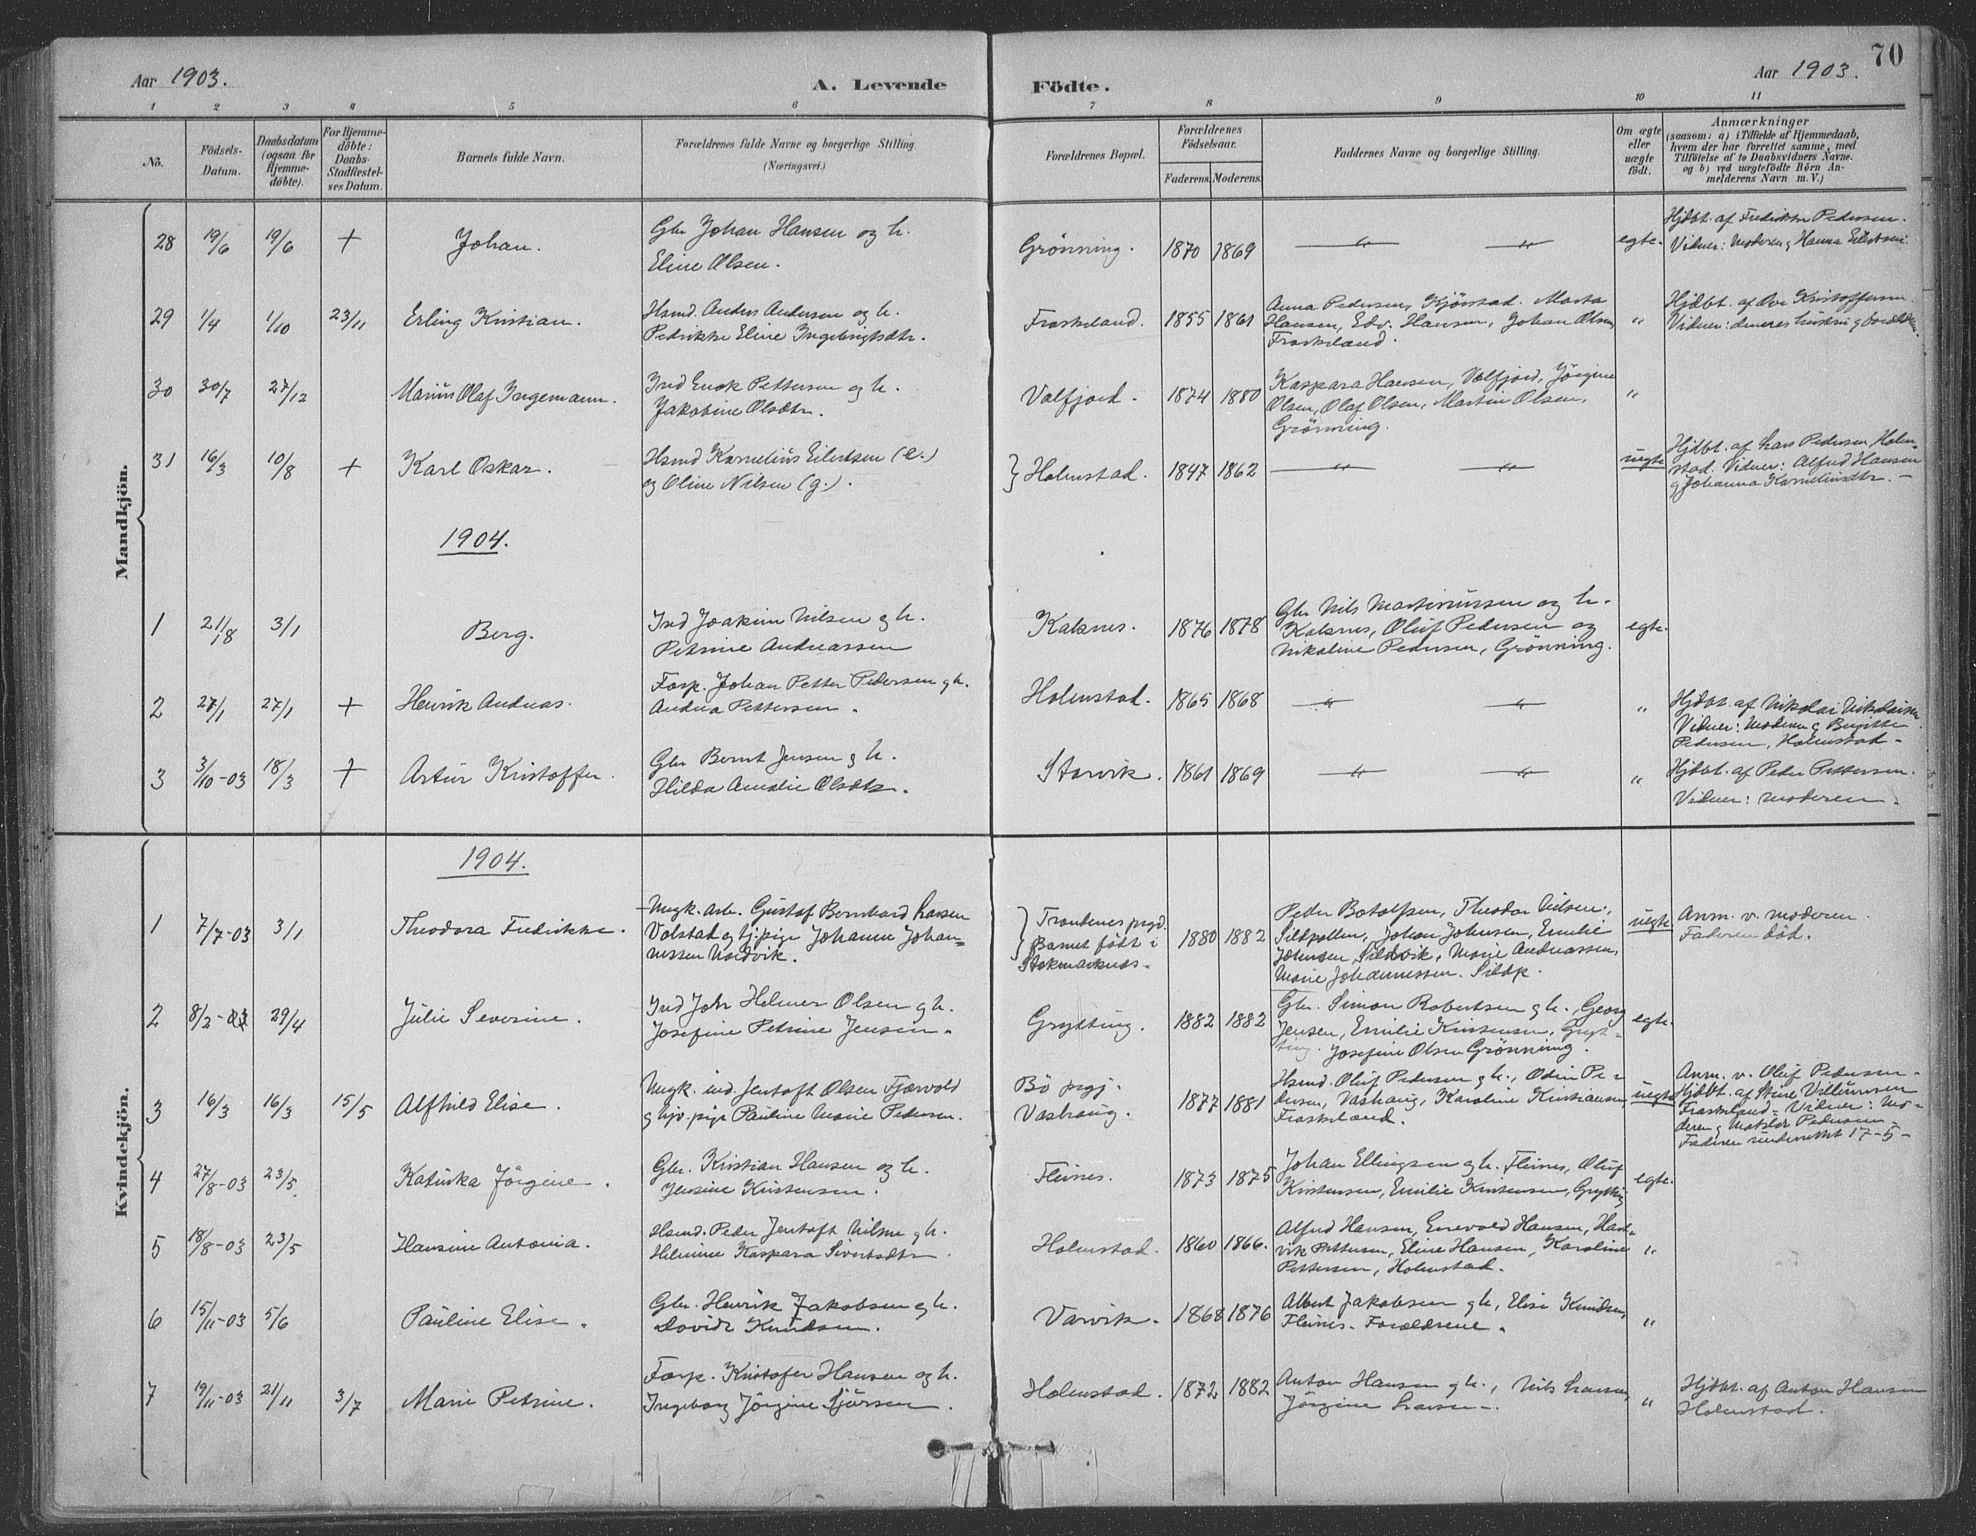 70
Aar 1903. A. Levende Födte. Aar 1903.
1 2 3 4 5 6 7 8 9 10 11
No. Födsels-Datum. Daabsdatum (ogsaa for Hjemme-döbte). For Hjemme-döbte: Daabs-Stadfæstel-ses Datum. Barnets fulde Navn. Forældrenes fulde Navne og borgerlige Stilling. (Næringsvei.) Forældrenes Bopæl. Forældrenes Födselsaar. Faderens. Moderens. Faddernes Navne og borgerlige Stilling. Om ægte eller uægte födt. Anmærkninger (saasom: a) i Tilfælde af Hjemmedaab, hvem der har forrettet samme, med Tilföielse af to Daabsvidners Navne. og b) ved uægtefödte Börn An-melderens Navn m. V.)
Mandkjön.
28 19/6 19/6 + Johan. Gbr Johan Hansen og h. Eline Olsen. Grönning. 1870 1869 — " — — " — egte. Hjdbt. af Fredrikke Pedersen. Vidner: Moderen g Hanna Eilertsen.
29 1/4 1/10 23/11 Erling Kristian. Hsmd. Anders Andersen og h. Pedrikke Eline Ingebrigtsdtr. Fraskeland. 1855 1861 Anna Pedersen, Kjörstad. Marta Hansen, Edv. Hansen, Johan Olsen, Fraskeland. " Hjdbt. af Ove Kristoffersen. Vidner: dennes hustru g forældrene.
30 30/7 27/12 Marius Olaf Ingemann. Ind Enok Pettersen og h. Jakobine Olsdtr. Valfjord. 1874 1880 Kaspara Hansen, Valfjord, Jörgine Olsen, Olaf Olsen, Martin Olsen, Grönning. "
31 16/3 10/8 + Karl Oskar. Hsmd Kornelius Eilertsen (e.) og Oline Nilsen (g.). } Holmstad. 1847 1862 — " — — " — uegte Hjdbt. af Lars Pedersen Holmstad. Vidner: Alfred Hansen g Johanna Korneliusdtr. –
1904.
1 21/8 3/1 Berg. Ind Joakim Nilsen g h. Petrine Andreassen Kalsnes. 1876 1878 Gbr Nils Martinussen og h. Kalsnes, Oluf Pedersen og Nikoline Pedersen, Grönning. egte.
2 27/1 27/1 + Henrik Andreas. Forp. Johan Petter Pedersen g h. Andrea Pettersen. Holmstad. 1865 1868 — " — — " — " Hjdbt. af Nikolai Nikolaisen. Vidner: Moderen g Birgitte Pedersen, Holmstad –
3 3/10-03 18/3 + Artur Kristoffer. Gbr Bernt Jensen g h. Hilda Amalie Olsdtr. Starvik. 1861 1869 — " — — " — " Hjdbt. af Peder Pettersen. Vidner: Moderen.
Kvindekjön.
1904.
1 7/7-03 3/1 Theodora Fredrikke. Ungk. Arb. Gustaf Bernhard Larsen Volstad og tj.pige Johanne Johannessen Nordvik. } Trondenes prgd. Barnet födt i Stokmarknæs. 1880 1882 Peder Botolfsen, Theodor Nilsen, Sildpollen, Johan Johnsen, Emilie Johnsen, Sildvik, Marie Andreassen, Marie Johannessen. Sildp. uegte Anm. v. moderen. Faderen död.
2 8/2-03 29/4 Julie Severine. Ind Joh Helmer Olsen g h. Josefine Petrine Jensen. Grytting. 1882 1882 Gbr. Simon Robertsen g h., Georg Jensen, Emilie Kristensen, Grytting. Josefine Olsen Grönning. egte.
3 16/3 16/3 15/5 Alfhild Elise. Ungk. ind. Jentoft Olsen Fjærvold g tj.pige Pauline Marie Pedersen. Bö prgj. Vashaug. 1877 1881 Hsmd. Oluf Pedersen g h., Odin Pedersen, Vashaug, Karoline Kristiansen, Fraskeland. uegte Anm. v. Oluf Pedersen – Hjdbt. af Stine Villumsen Fraskeland – Vidner: Moderen g Matilde Pedersen – Faderen underrettet 17-5 –
4 27/8-03 23/5. Katinka Jörgine. Gbr. Kristian Hansen og h. Jensine Kristensen. Fleines. 1873 1875 Johan Ellingsen g h. Fleines, Oluf Kristensen, Emilie Kristensen, Grytting egte.
5 18/8-03 23/5 Hansine Antonia. Hsmd. Peder Jentoft Nilsen g h. Helmine Kaspara Sivertsdtr. Holmstad. 1860 1866. Alfred Hansen, Enevold Hansen, Hartvik Pettersen, Eline Hansen, Karoline Pettersen, Holmstad. "
6 15/11-03 5/6 Pauline Elise. Gbr. Henrik Jakobsen g h. Dovide Knudsen. Varvik. 1868 1876 Albert Jakobsen g h., Elise Knudsen, Fleines – Forældrene. "
7 19/11-03 21/11 3/7 Marie Petrine. Forp. Kristofer Hansen og h. Ingeborg Jörgine Sjörsen. Holmstad. 1872 1882 Anton Hansen g h., Nils Larsen, Jörgine Larsen –. " Hjdbt. af Anton Hansen Holmstad.